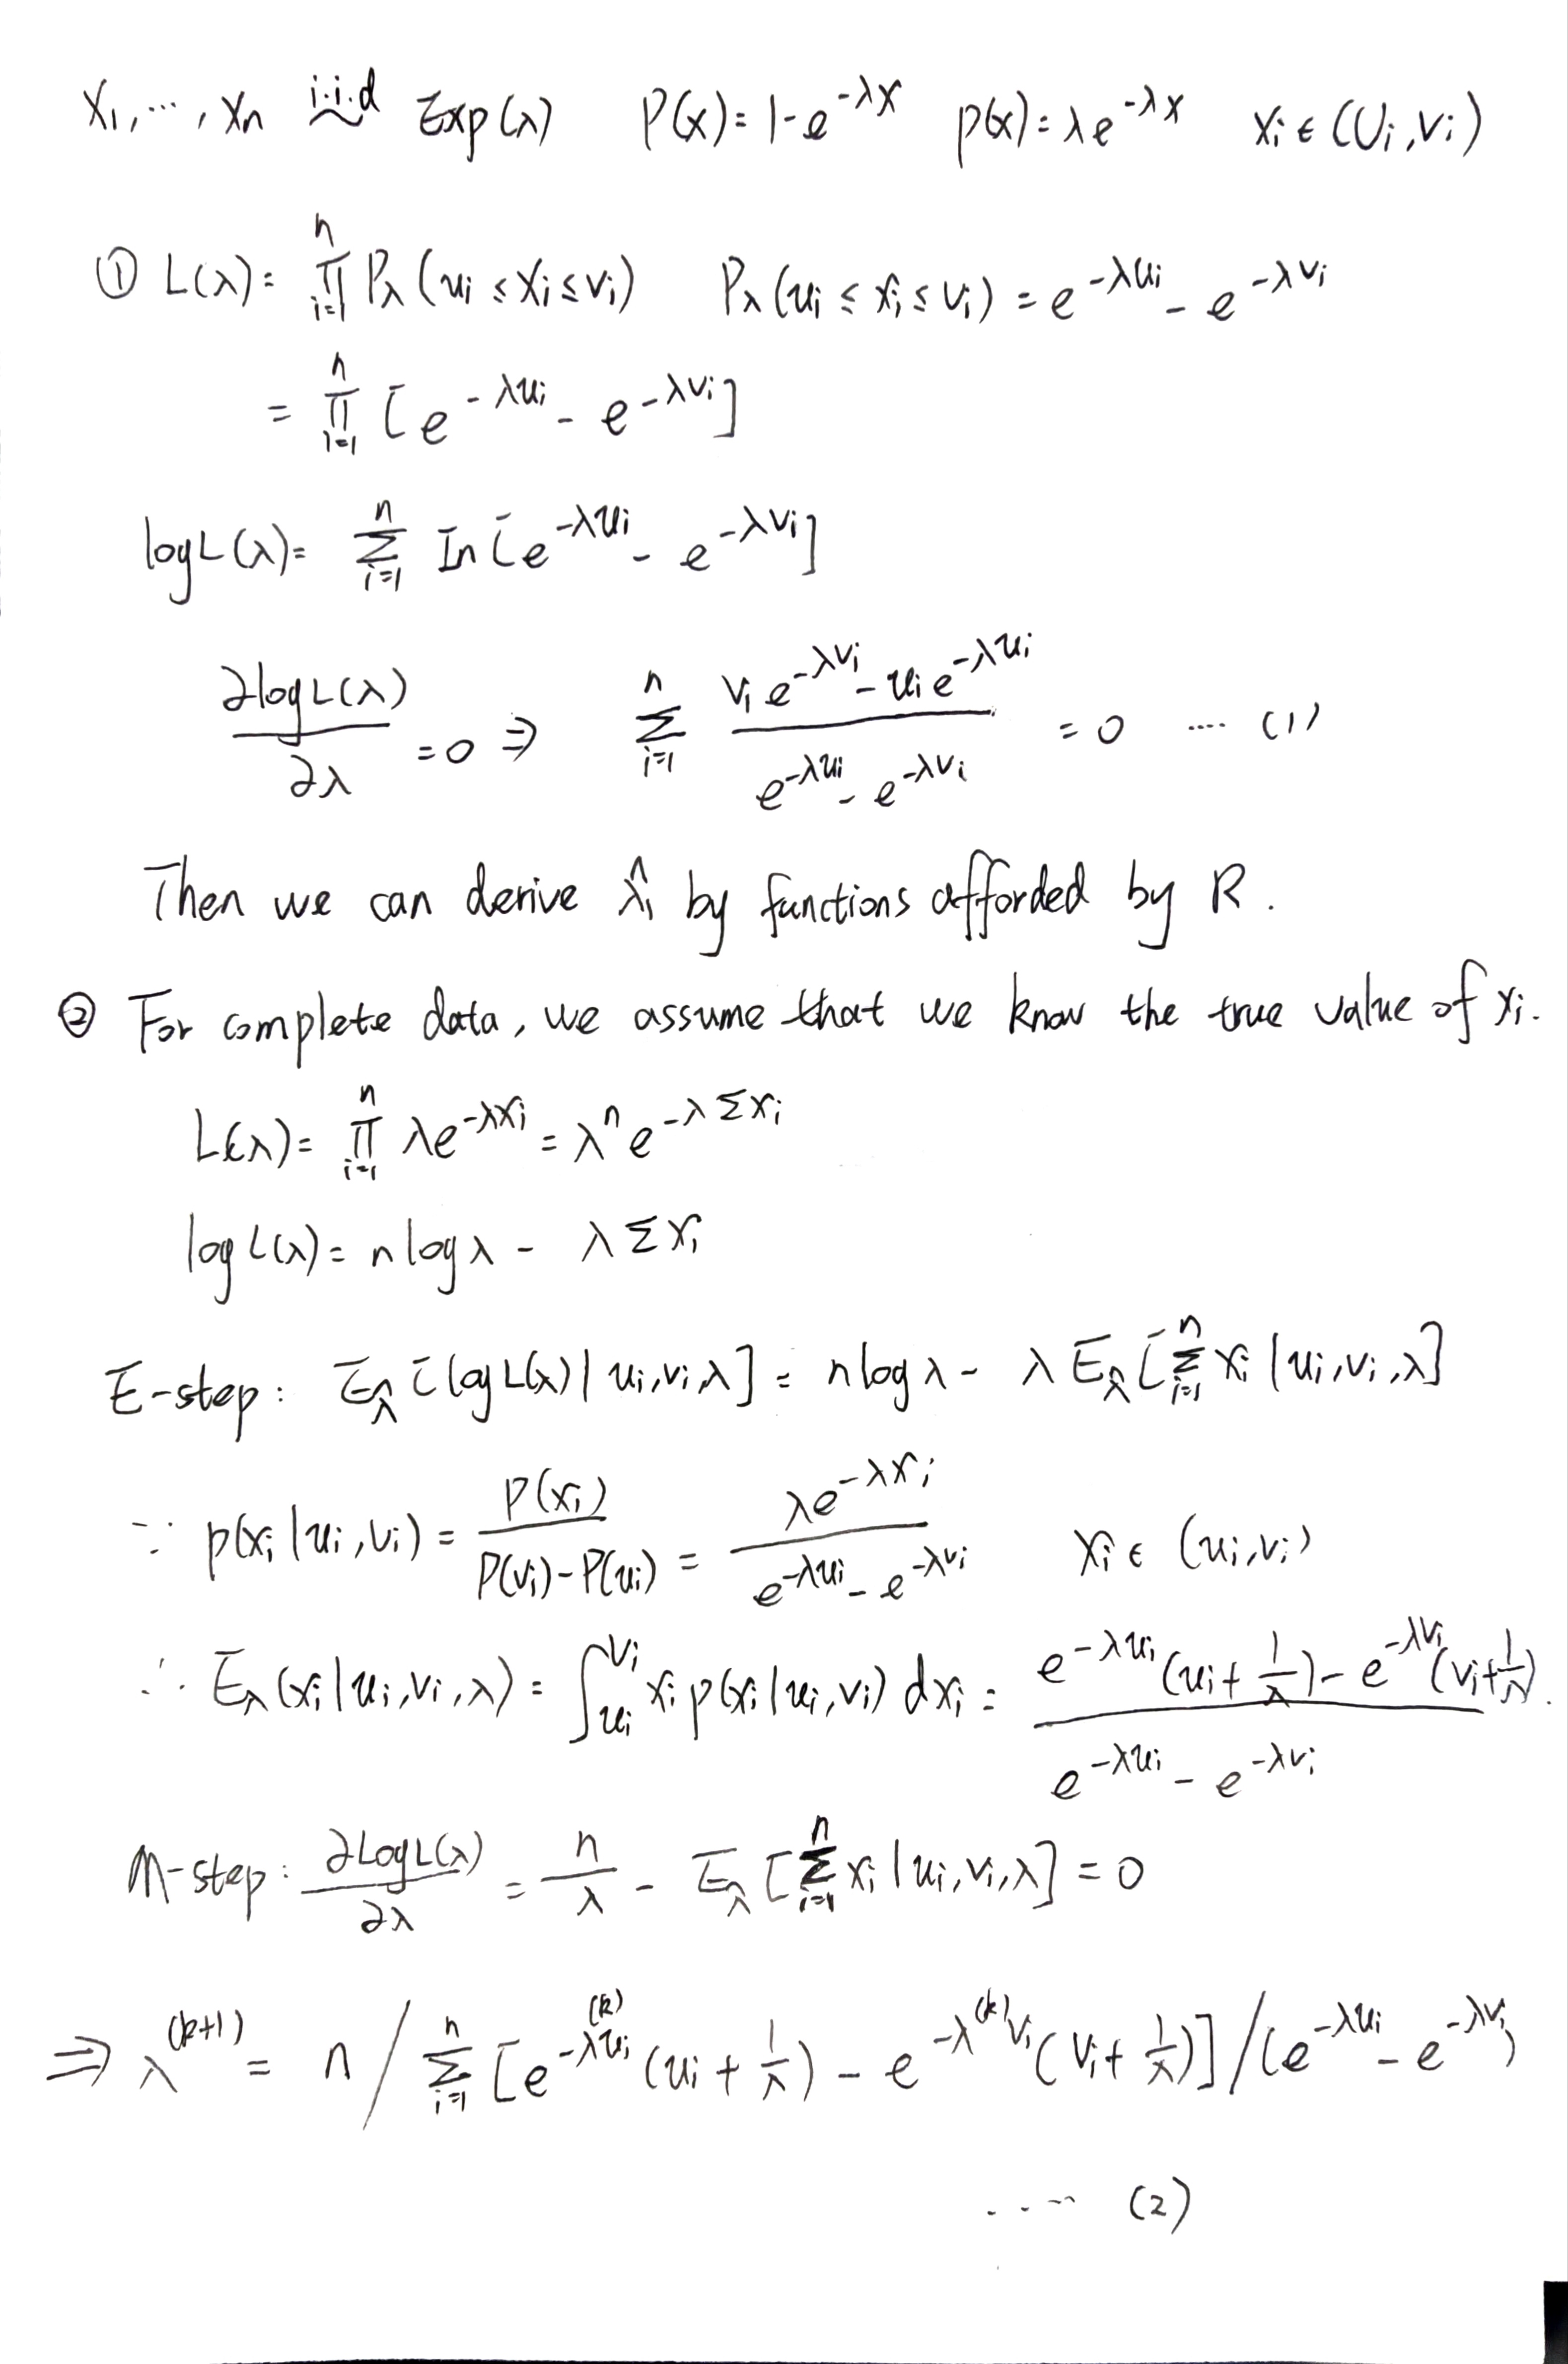 X₁,⋯,Xn i.i.d ~ Exp(λ) P(x)=1-e^{-λx} p(x)=λe^{-λx} Xi∈(Ui,Vi)
① L(λ)= ∏_{i=1}^{n} Pλ(ui≤Xi≤vi) Pλ(ui≤Xi≤vi)=e^{-λui}-e^{-λvi}
= ∏_{i=1}^{n} [e^{-λui}-e^{-λvi}]
logL(λ)= ∑_{i=1}^{n} In[e^{-λui}-e^{-λvi}]
∂logL(λ)/∂λ =0 ⇒ ∑_{i=1}^{n} (vi e^{-λvi}-ui e^{-λui})/(e^{-λui}-e^{-λvi}) =0 ⋯ (1)
Then we can derive λ̂₁ by functions afforded by R.
② For complete data, we assume that we know the true value of xi.
L(λ)= ∏_{i=1}^{n} λe^{-λxi}=λ^n e^{-λ∑xi}
logL(λ)=nlogλ- λ∑xi
E-step: E_λ̂[logL(λ)|ui,vi,λ]= nlogλ- λE_λ̂[∑_{i=1}^{n} xi|ui,vi,λ]
∵ p(xi|ui,vi)= P(xi)/(P(vi)-P(ui)) = λe^{-λxi}/(e^{-λui}-e^{-λvi}) xi∈(ui,vi)
∴ Eλ(xi|ui,vi,λ)= ∫_{ui}^{vi} xi p(xi|ui,vi)dxi= (e^{-λui}(ui+1/λ)-e^{-λvi}(vi+1/λ))/(e^{-λui}-e^{-λvi}).
M-step: ∂LogL(λ)/∂λ = n/λ - E_λ̂[∑_{i=1}^{n} xi|ui,vi,λ]=0
⇒ λ^{(k+1)}= n/∑_{i=1}^{n} [e^{-λ^{(k)}ui}(ui+1/λ)-e^{-λ^{(k)}vi}(vi+1/λ)]/(e^{-λui}-e^{-λvi})
⋯⋯ (2)